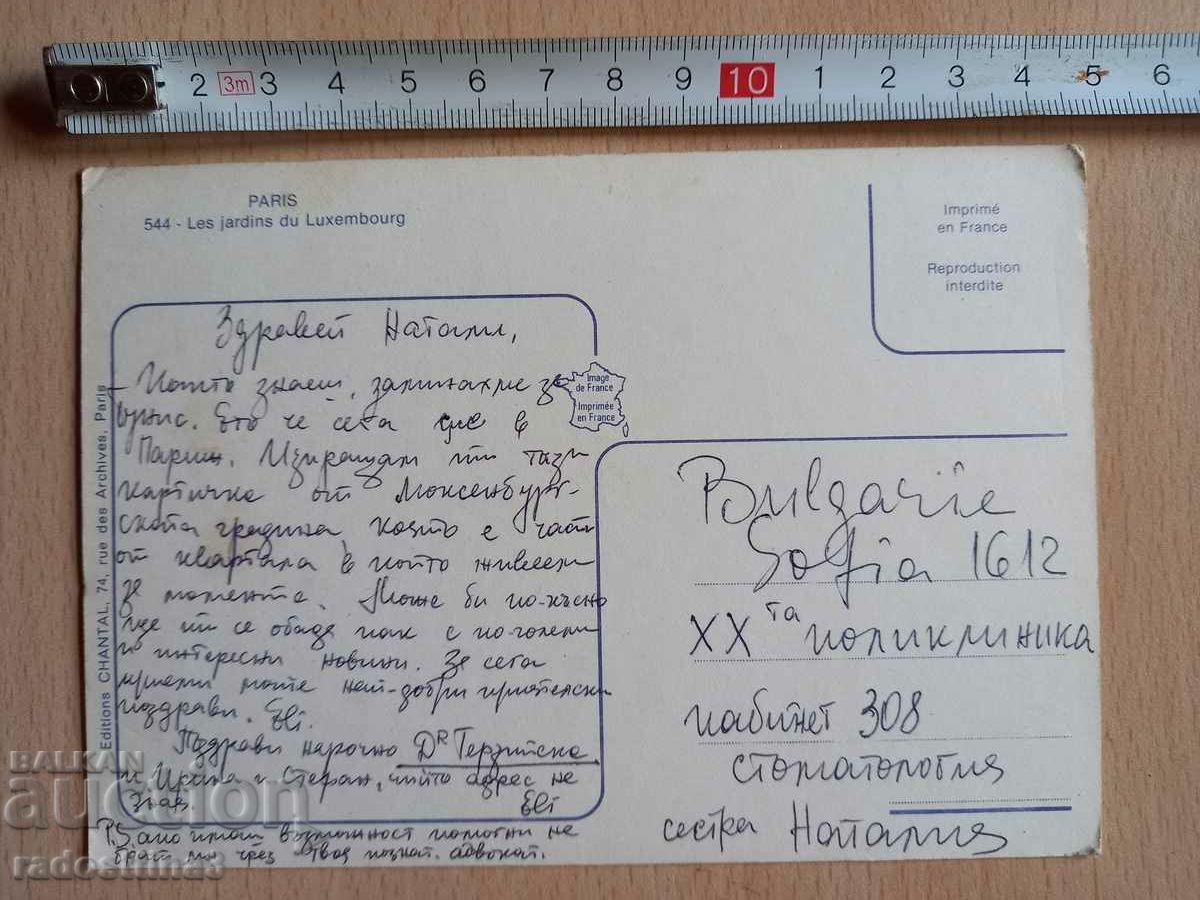 2 3m 3 4 5 6 7 8 9 10 1 2 3 4 5 6
PARIS
544 - Les jardins du Luxembourg
Imprimé
en France
Reproduction
interdite
Editions CHANTAL, 74, rue des Archives, Paris
Image
de France
Imprimée
en France
Здравей Натали,
Както знаеш, заминахме за
Ето че сега сме в
Париж. Изпращам ти тази
картичка от Люксенбург-
ската градина, която е част
от квартала в който живеем
за момента. Може би по-късно
ще ти се обадя пак с по-големи
и интересни новини. За сега
приеми моите най-добри приятелски
поздрави. Eli.
Поздрави нарочно Dr Терзийска
и Ирина и Стефан, чийто адрес не
знам. Eli
P.S. ако имаш възможност помогни на
брат ми чрез твоя познат адвокат.
Bulgarie
Sofia 1612
XX та поликлиника
кабинет 308
стоматология
сестра Наталия
BALKAN
auction
radostina3